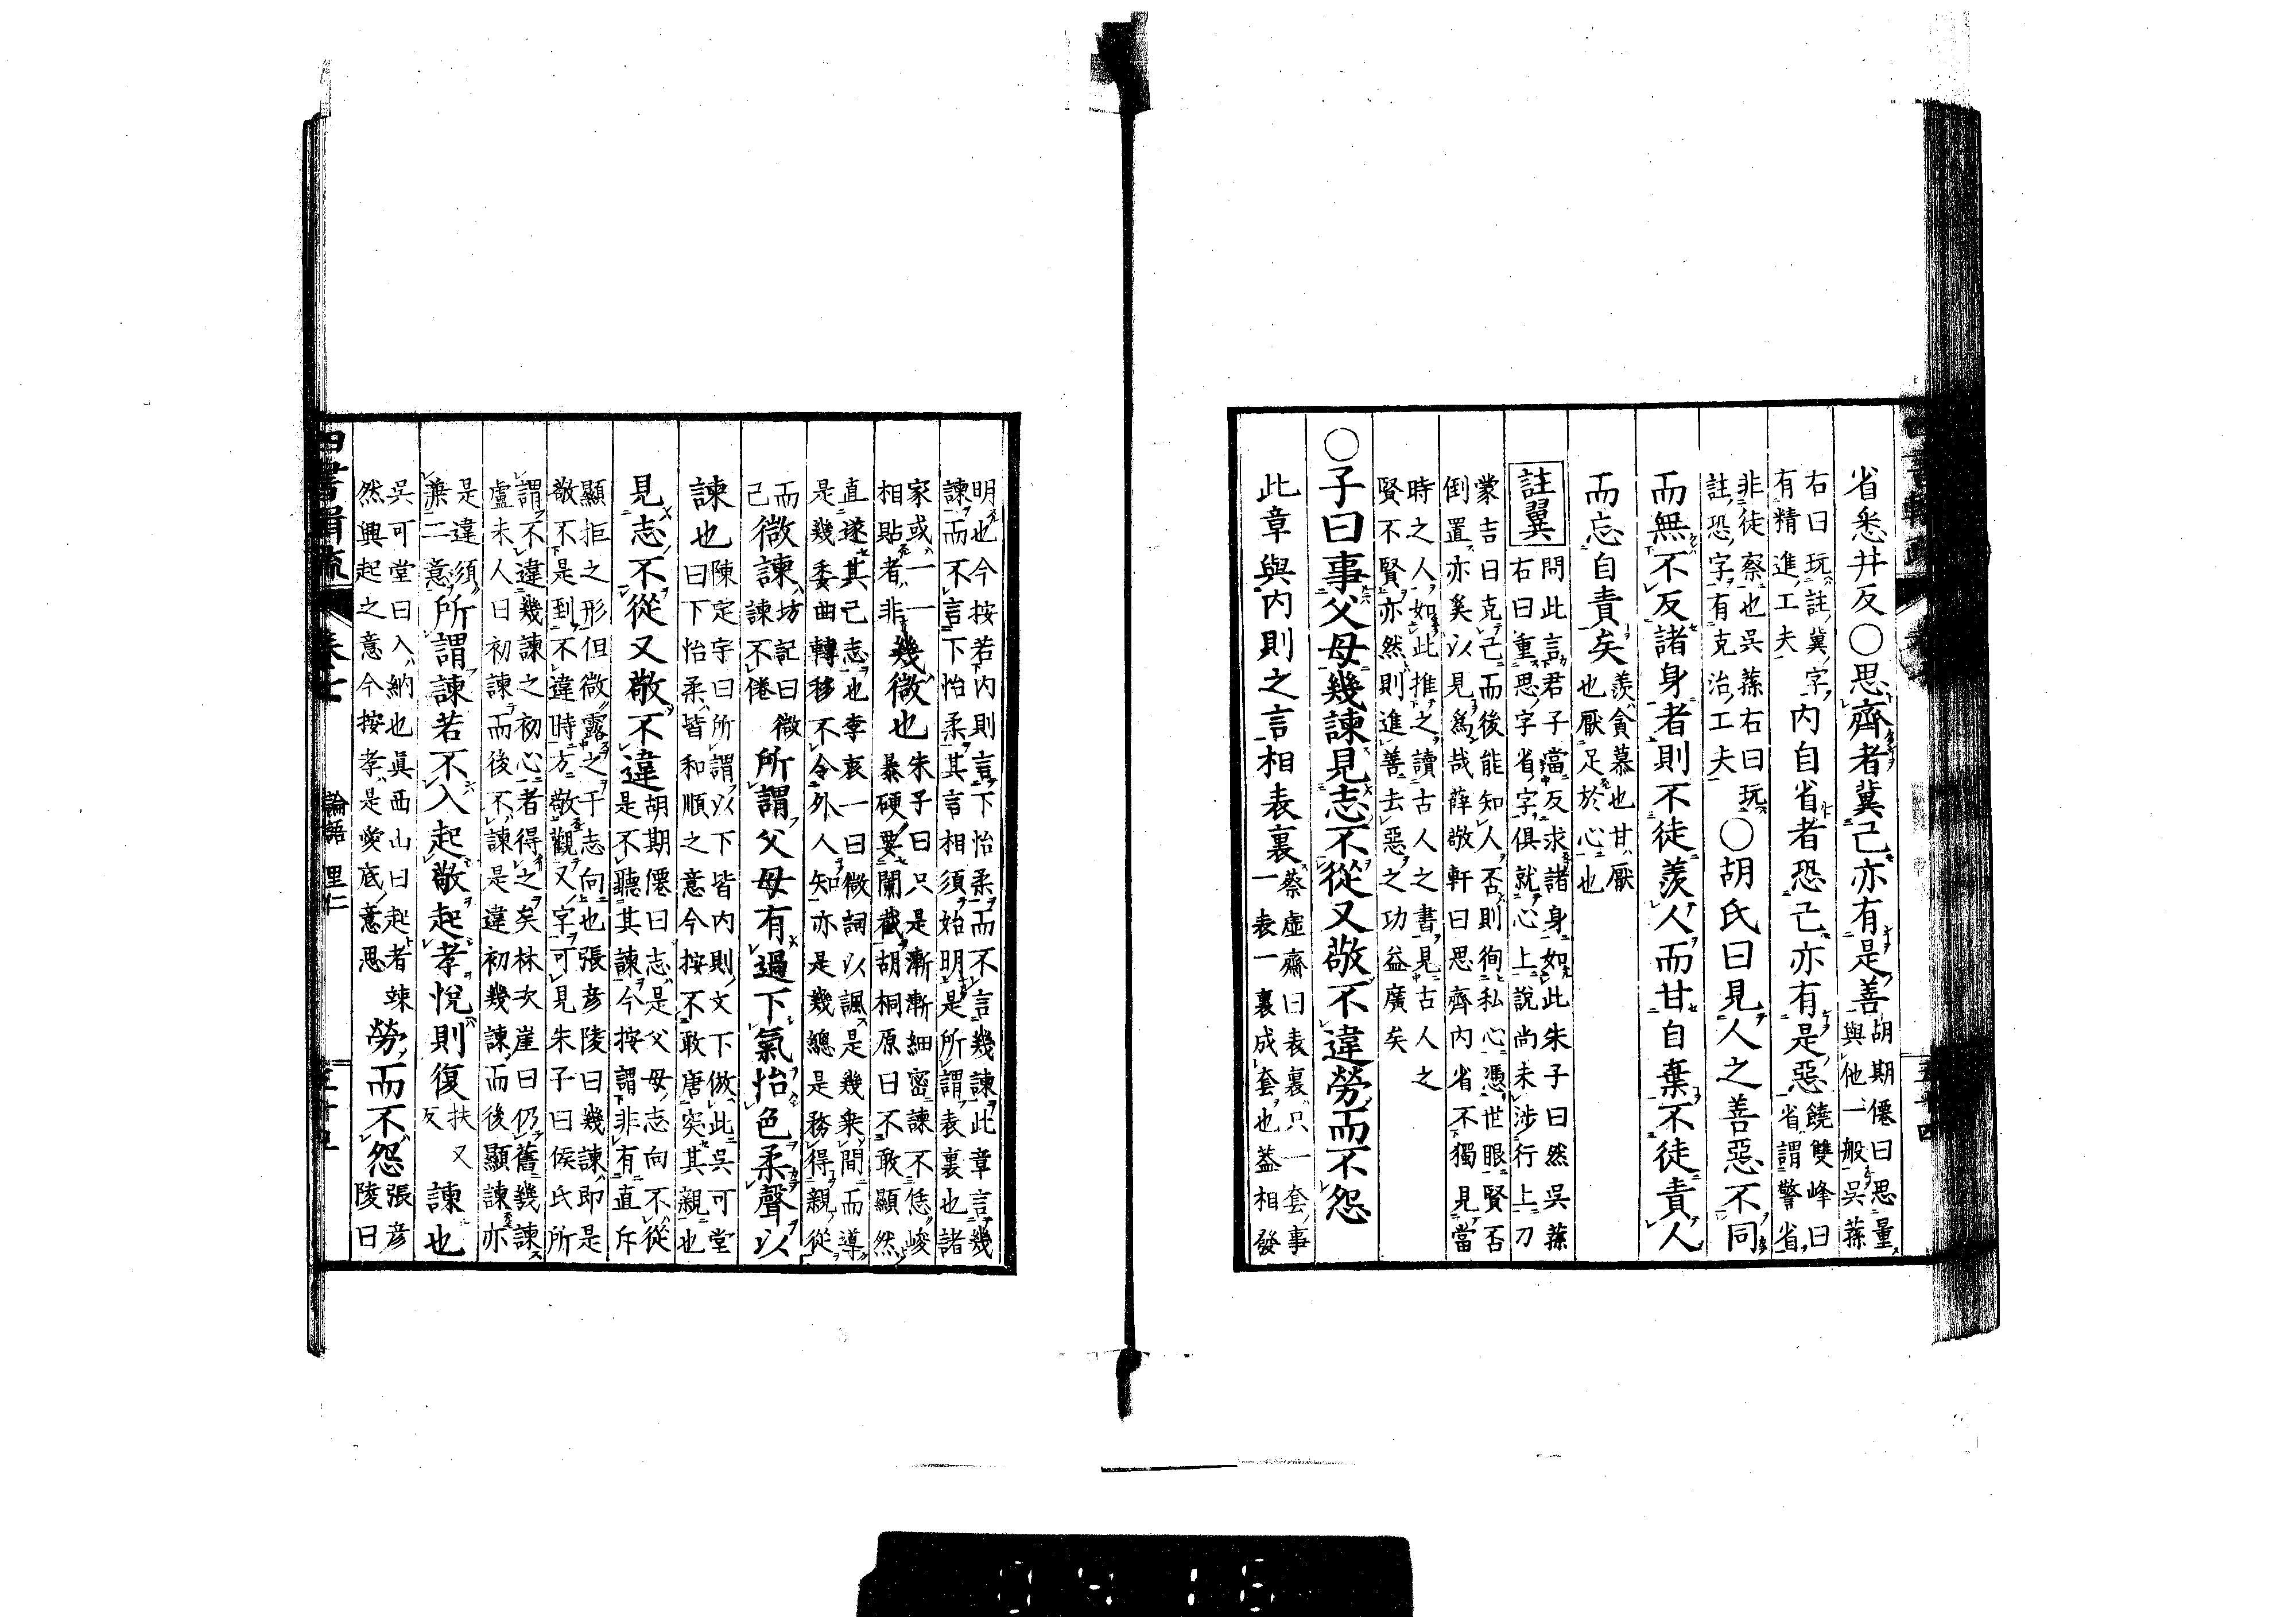 省悉井反○思齊者冀己亦有是善胡期僊曰思量與他一般吳蓀
右曰玩註冀字有精進工夫內自省者恐己亦有是惡饒雙峰曰省謂警省
非徒察也吳蓀右曰玩註恐字有克治工夫○胡氏曰見人之善惡不同
而無不反諸身者則不徒羨人而甘自棄不徒責人
而忘自責矣羨貪慕也甘厭也厭足於心也
註翼問此言君子當反求諸身如此朱子曰然吳蓀右曰重思字省字俱就心上說尚未涉行上刀
蒙吉曰克己而後能知人否則徇私心憑世眼賢否倒置亦奚以見爲哉薛敬軒曰思齊內省不獨見當
時之人如此推之讀古人之書見古人之賢不賢亦然則進善去惡之功益廣矣
○子曰事父母幾諫見志不從又敬不違勞而不怨
此章與內則之言相表裏蔡虛齋曰表裏只一套事一表一裏成套也蓋相發
明也今按若內則言下怡柔而不言幾諫此章言幾諫而不言下怡柔其言相須始明是所謂表裏也諸
家或一一相貼者非幾微也朱子曰只是漸漸細密諫不恁峻暴硬要闌截胡桐原曰不敢顯然
直遂其己志也李衷一曰微詞以諷是幾乘間而導是幾委曲轉移不令外人知亦是幾總是務得親從
而己微諫坊記曰微諫不倦所謂父母有過下氣怡色柔聲以
諫也陳定宇曰所謂以下皆內則文下倣此吳可堂曰下怡柔皆和順之意今按不敢唐突其親也
見志不從又敬不違胡期僊曰志是父母志向不從是不聽其諫今按謂非有直斥
顯拒之形但微露之于志向也張彥陵曰幾諫即是敬不是到不違時方敬觀又字可見朱子曰侯氏所
謂不違幾諫之初心者得之矣林次崖曰仍舊幾諫盧未人曰初諫而後不諫是違初幾諫而後顯諫亦
是違須兼二意所謂諫若不入起敬起孝悅則復扶又反諫也
吳可堂曰入納也眞西山曰起者竦然興起之意今按孝是愛底意思勞而不怨張彥陵曰
四書輯疏 卷七 論語 里仁 五十五